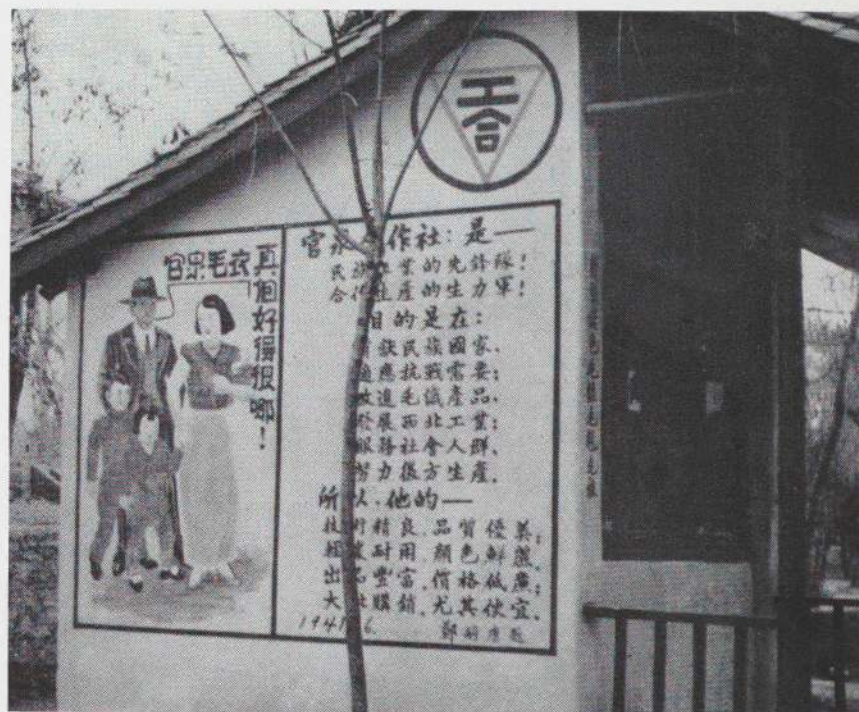 工合
官泉毛衣
真個好得很哪!
官泉 作社:是——
民族 業的先鋒隊!
合作 產的生力軍!
目的是在:
貢獻民族國家、
適應抗戰需要;
改進毛織產品、
發展西北工業;
服務社會人群、
努力後方生產、
所以、他的——
技術精良、品質優美;
耐用、顏色鮮艷、
出品豐富、價格低廉;
大 購銷、尤其便宜、
1941.6.
鄭